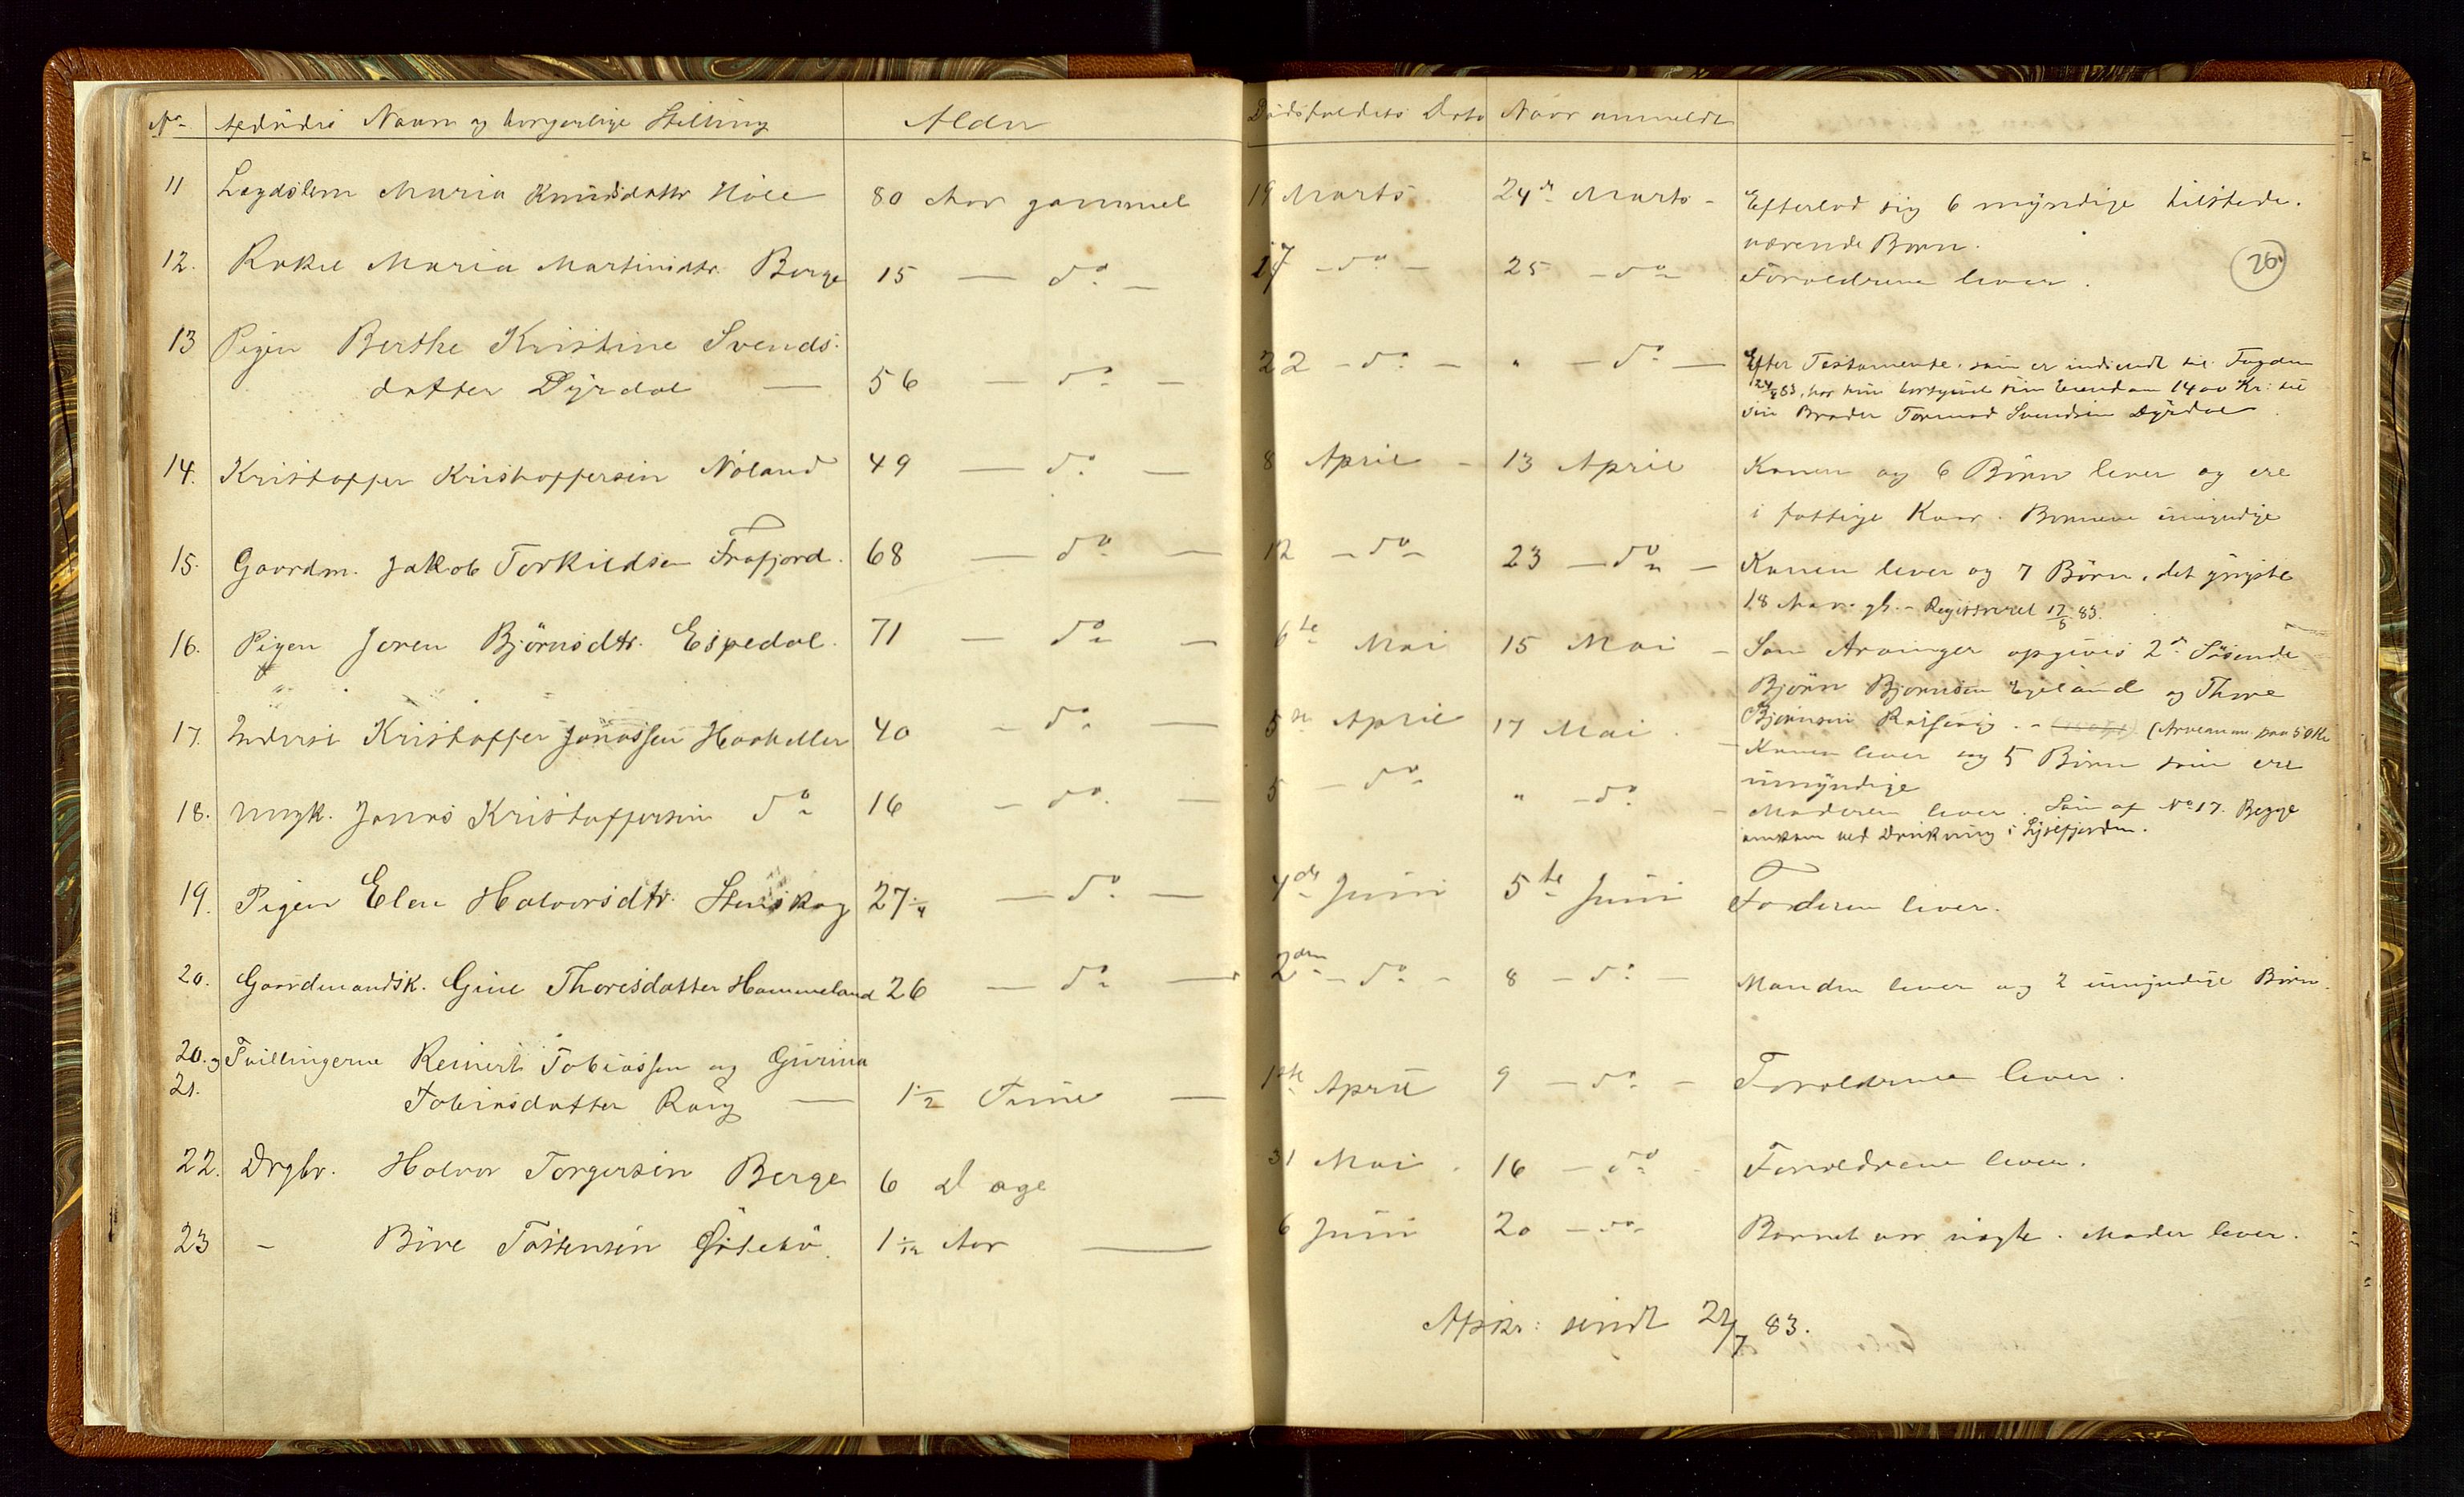 No Afdødes Navn og borgerlige Stilling Alder Dødsfaldets Dato Naar anmeldt
11 Lægdslem Maria Knudsdatter Høle 80 Aar gammel 19 Marts 24de Marts - Efterlod sig 6 myndige tilstede-
værende Børn.
12. Rakel Maria Martinsdtr. Berge 15 — do — 17 - do - 25 - do Forældrene lever.
26
13 Pigen Berthe Kristine Svends-
datter Dyrdal — 56 — do — 22 - do - " - do — Efter Testamente, som er indsendt til Fogden
24/4 83, har hun bortgivet sin Eiendom 1400 Kr. til
sin Broder Tormod Svendsen Dyrdal
14. Kristoffer Kristoffersen Nøland 49 — do — 8 April - 13 April Konen og 6 Børn lever og ere
i fattige Kaar. Børnene umyndige
15. Gaardm. Jakob Torkildsen Frafjord. 68 — do — 12 - do - 23 - do - Konen lever og 7 Børn, det yngste
18 Aar gl. - Registreret 17/5 83.
16. Pigen Joren Bjørnsdtr. Espedal. 71 — do — 6te Mai 15 Mai - Som Arvinger opgives 2de Søsende
Bjørn Bjørnsen Egeland og Thore
Bjørnsen . - (Arveanm. paa 50 Kr
17. Inderst Kristoffer Jonassen Haaheller 40 - do — 5te April 17 Mai. - Konen lever og 5 Børn som ere
umyndige
18. Ungk. Jonas Kristoffersen do 16 - do. — 5 - do " - do - Moderen lever. Søn af No 17. Begge
omkom ved Drukning i Lysefjorden.
19. Pigen Elen Halvorsdtr. Stenskog 27 1/4 — do — 4de Juni 5te Juni Faderen lever.
20. Gaardmandsk. Gine Thoresdatter Hommeland 26 — do — 2den - do - 8 - do - Manden lever og 2 umyndige Børn.
20. og Tvillingerne Reinert Tobiassen og Gurina
21. Tobiasdatter — 1/2 Time — 1ste April 9 - do - Forældrene lever.
22. Drgbr. Halvor Torgersen Berge 6 Dage 31 Mai. 16 - do - Forældrene lever.
23 - Tostensen 1 1/12 Aar — 6 Juni 20 - do - Barnet var uægte. Moder lever.
Afskr: sendt 22/7 83.